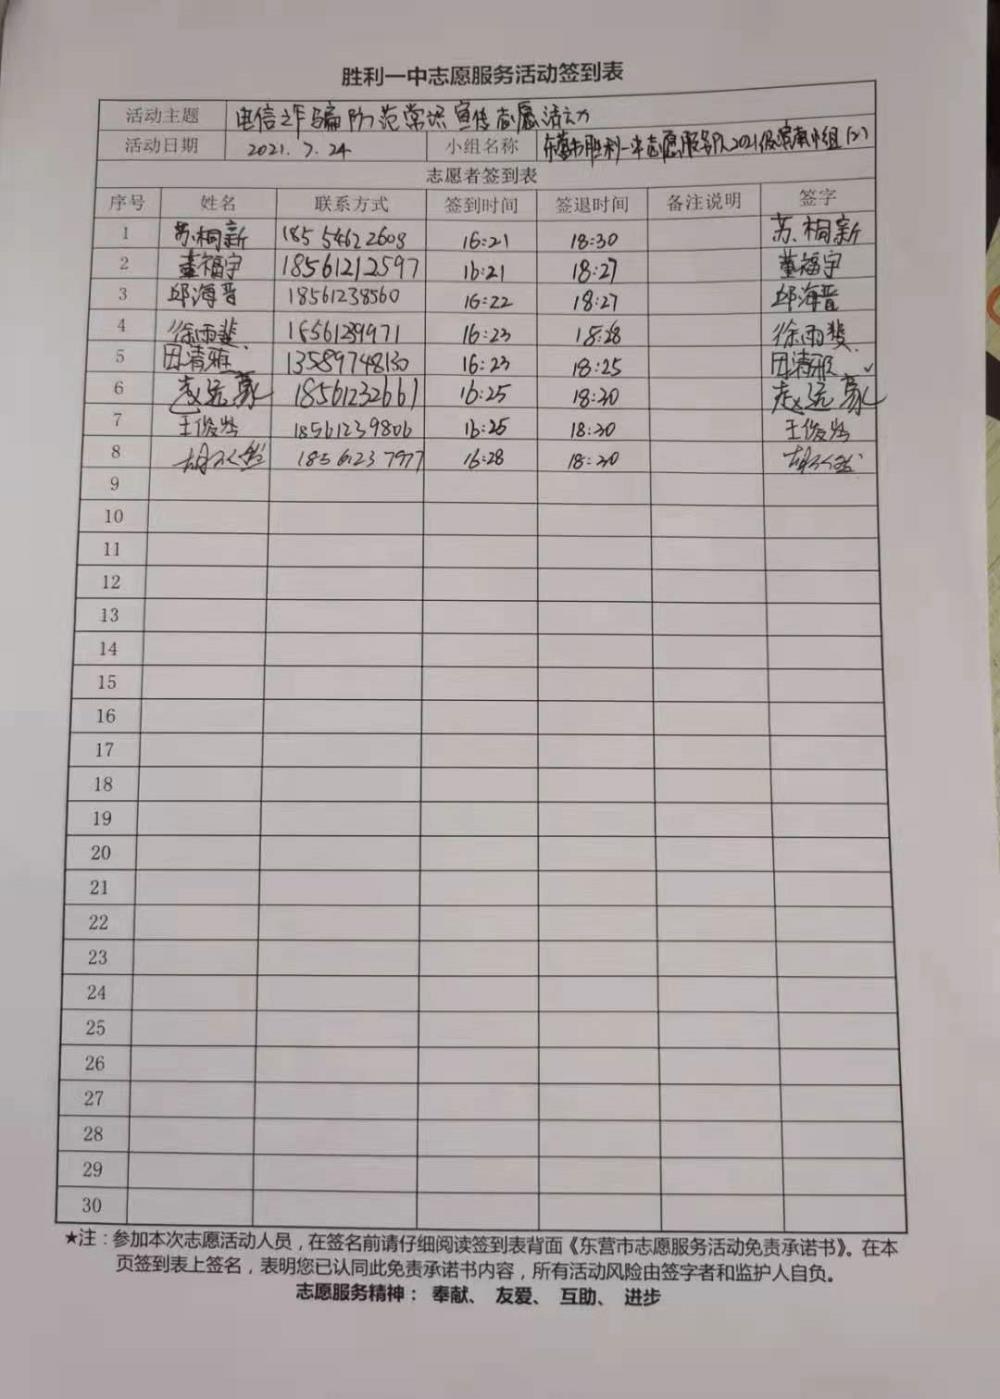 胜利一中志愿服务活动签到表
活动主题 电信诈骗防范常识宣传志愿活动
活动日期 2021.7.24 小组名称 东营市胜利一中志愿服务队2021级 小组(2)
志愿者签到表
序号 姓名 联系方式 签到时间 签退时间 备注说明 签字
1 苏桐新 18554622608 16:21 18:30 苏桐新
2 董福宇 18561212597 16:21 18:27 董福宇
3 邱海晋 18561238560 16:22 18:27 邱海晋
4 徐雨斐 16:23 18:28 徐雨斐
5 田清雅 13589748130 16:23 18:25 田清雅
6 赵远豪 18561232661 16:25 18:30 赵远豪
7 王俊 18561239806 16:25 18:30 王俊
8 胡 18561237977 16:28 18:30 胡
9
10
11
12
13
14
15
16
17
18
19
20
21
22
23
24
25
26
27
28
29
30
★注：参加本次志愿活动人员，在签名前请仔细阅读签到表背面《东营市志愿服务活动免责承诺书》。在本
页签到表上签名，表明您已认同此免责承诺书内容，所有活动风险由签字者和监护人自负。
志愿服务精神： 奉献、 友爱、 互助、 进步